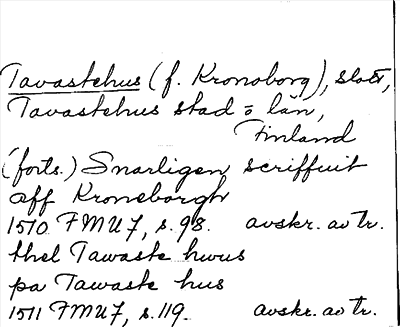 Tavastehus (f. Kronoborg), slott,
Tavastehus stad o län,
Finland
(forts.) Snarligen scriffuit
aff Kroneborgh
1510 FMU 7, s. 98. avskr. av tr.
thel Tawaste hwus
pa Tawaste hus
1511 FMU 7, s. 119. avskr. av tr.